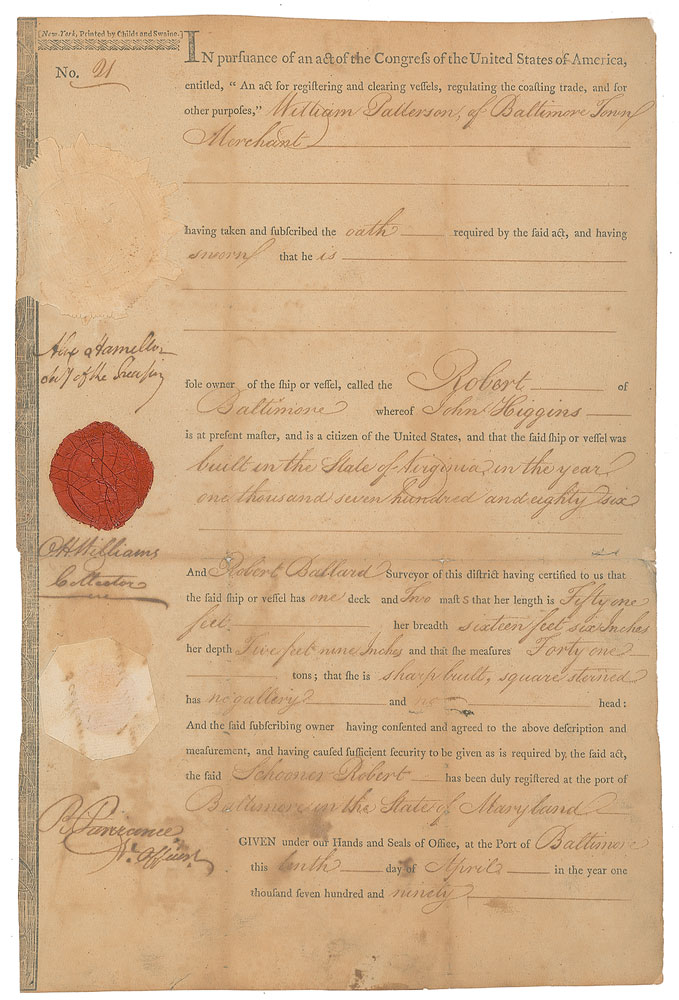 [New-York, Printed by Childs and Swaine.]
No. 21
IN pursuance of an act of the Congreſs of the United States of America,
entitled, “ An act for regiſtering and clearing veſſels, regulating the coaſting trade, and for
other purpoſes,” William Patterson, of Baltimore Town
Merchant
having taken and ſubſcribed the oath required by the ſaid act, and having
sworn that he is
Alex Hamilton
of the
ſole owner of the ſhip or veſſel, called the Robert of
Baltimore whereof John Higgins
is at preſent maſter, and is a citizen of the United States, and that the ſaid ſhip or veſſel was
built in the State of Virginia in the year
one thousand seven hundred and eighty six
OH Williams
Collector
And Robert Ballard Surveyor of this diſtrict having certified to us that
the ſaid ſhip or veſſel has one deck and Two maſts that her length is Fifty one
feet her breadth sixteen feet six Inches
her depth Five feet nine Inches and that ſhe meaſures Forty one
tons; that ſhe is sharp built, square sterned
has no gallery and no head:
And the ſaid ſubſcribing owner having conſented and agreed to the above deſcription and
meaſurement, and having cauſed ſufficient ſecurity to be given as is required by, the ſaid act,
the ſaid Schooner Robert has been duly regiſtered at the port of
Baltimore in the State of Maryland
R
N. Officer
GIVEN under our Hands and Seals of Office, at the Port of Baltimore
this tenth day of April in the year one
thouſand ſeven hundred and ninety